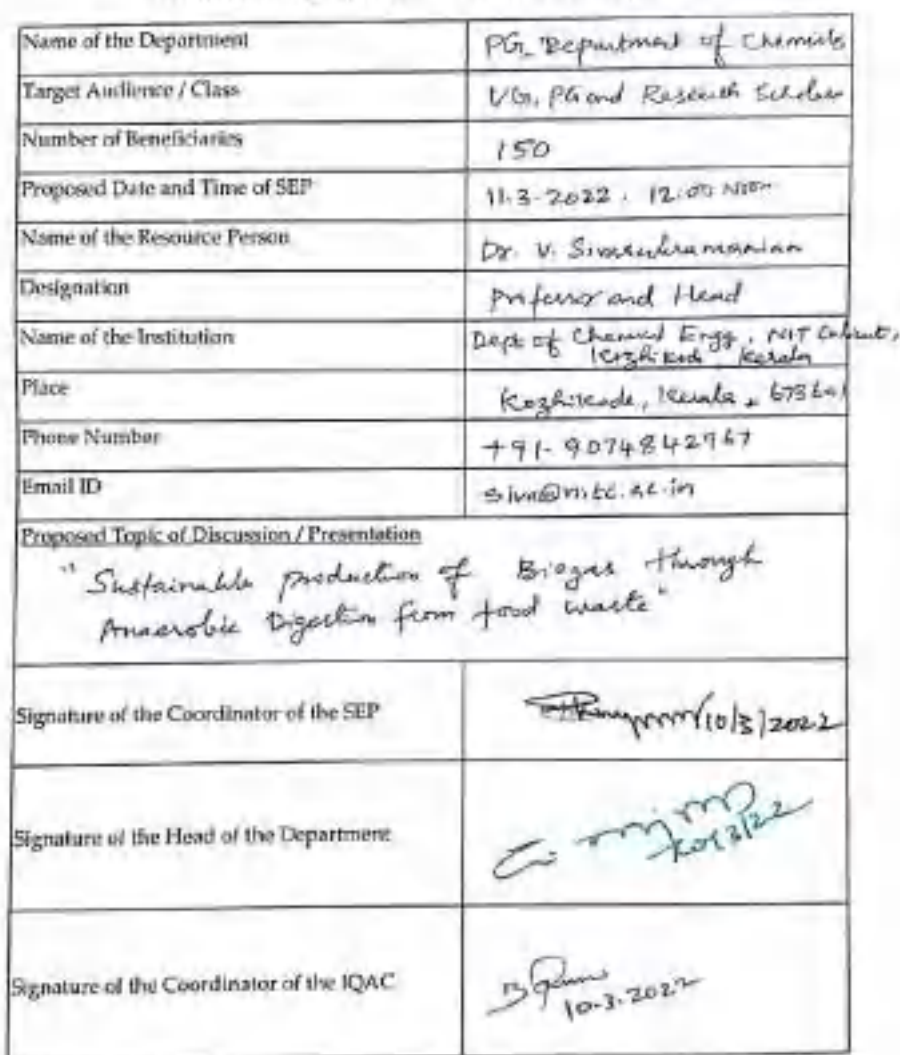 Name of the Department PG Department of Chemistry
Target Audience / Class UG, PG and Research Scholars
Number of Beneficiaries 150
Proposed Date and Time of SEP 11.3.2022. 12.00 Noon
Name of the Resource Person Dr. V. Sivasubramanian
Designation Professor and Head
Name of the Institution Dept of Chemical Engg, NIT Calicut,
Kozhikode Kerala
Place Kozhikode, Kerala, 673601
Phone Number +91-9074842967
Email ID siva@nitc.ac.in
Proposed Topic of Discussion / Presentation
"Sustainable production of Biogas through
Anaerobic Digestion from food waste"
Signature of the Coordinator of the SEP 10/3/2022
Signature of the Head of the Department 10/3/22
Signature of the Coordinator of the IQAC 10.3.2022